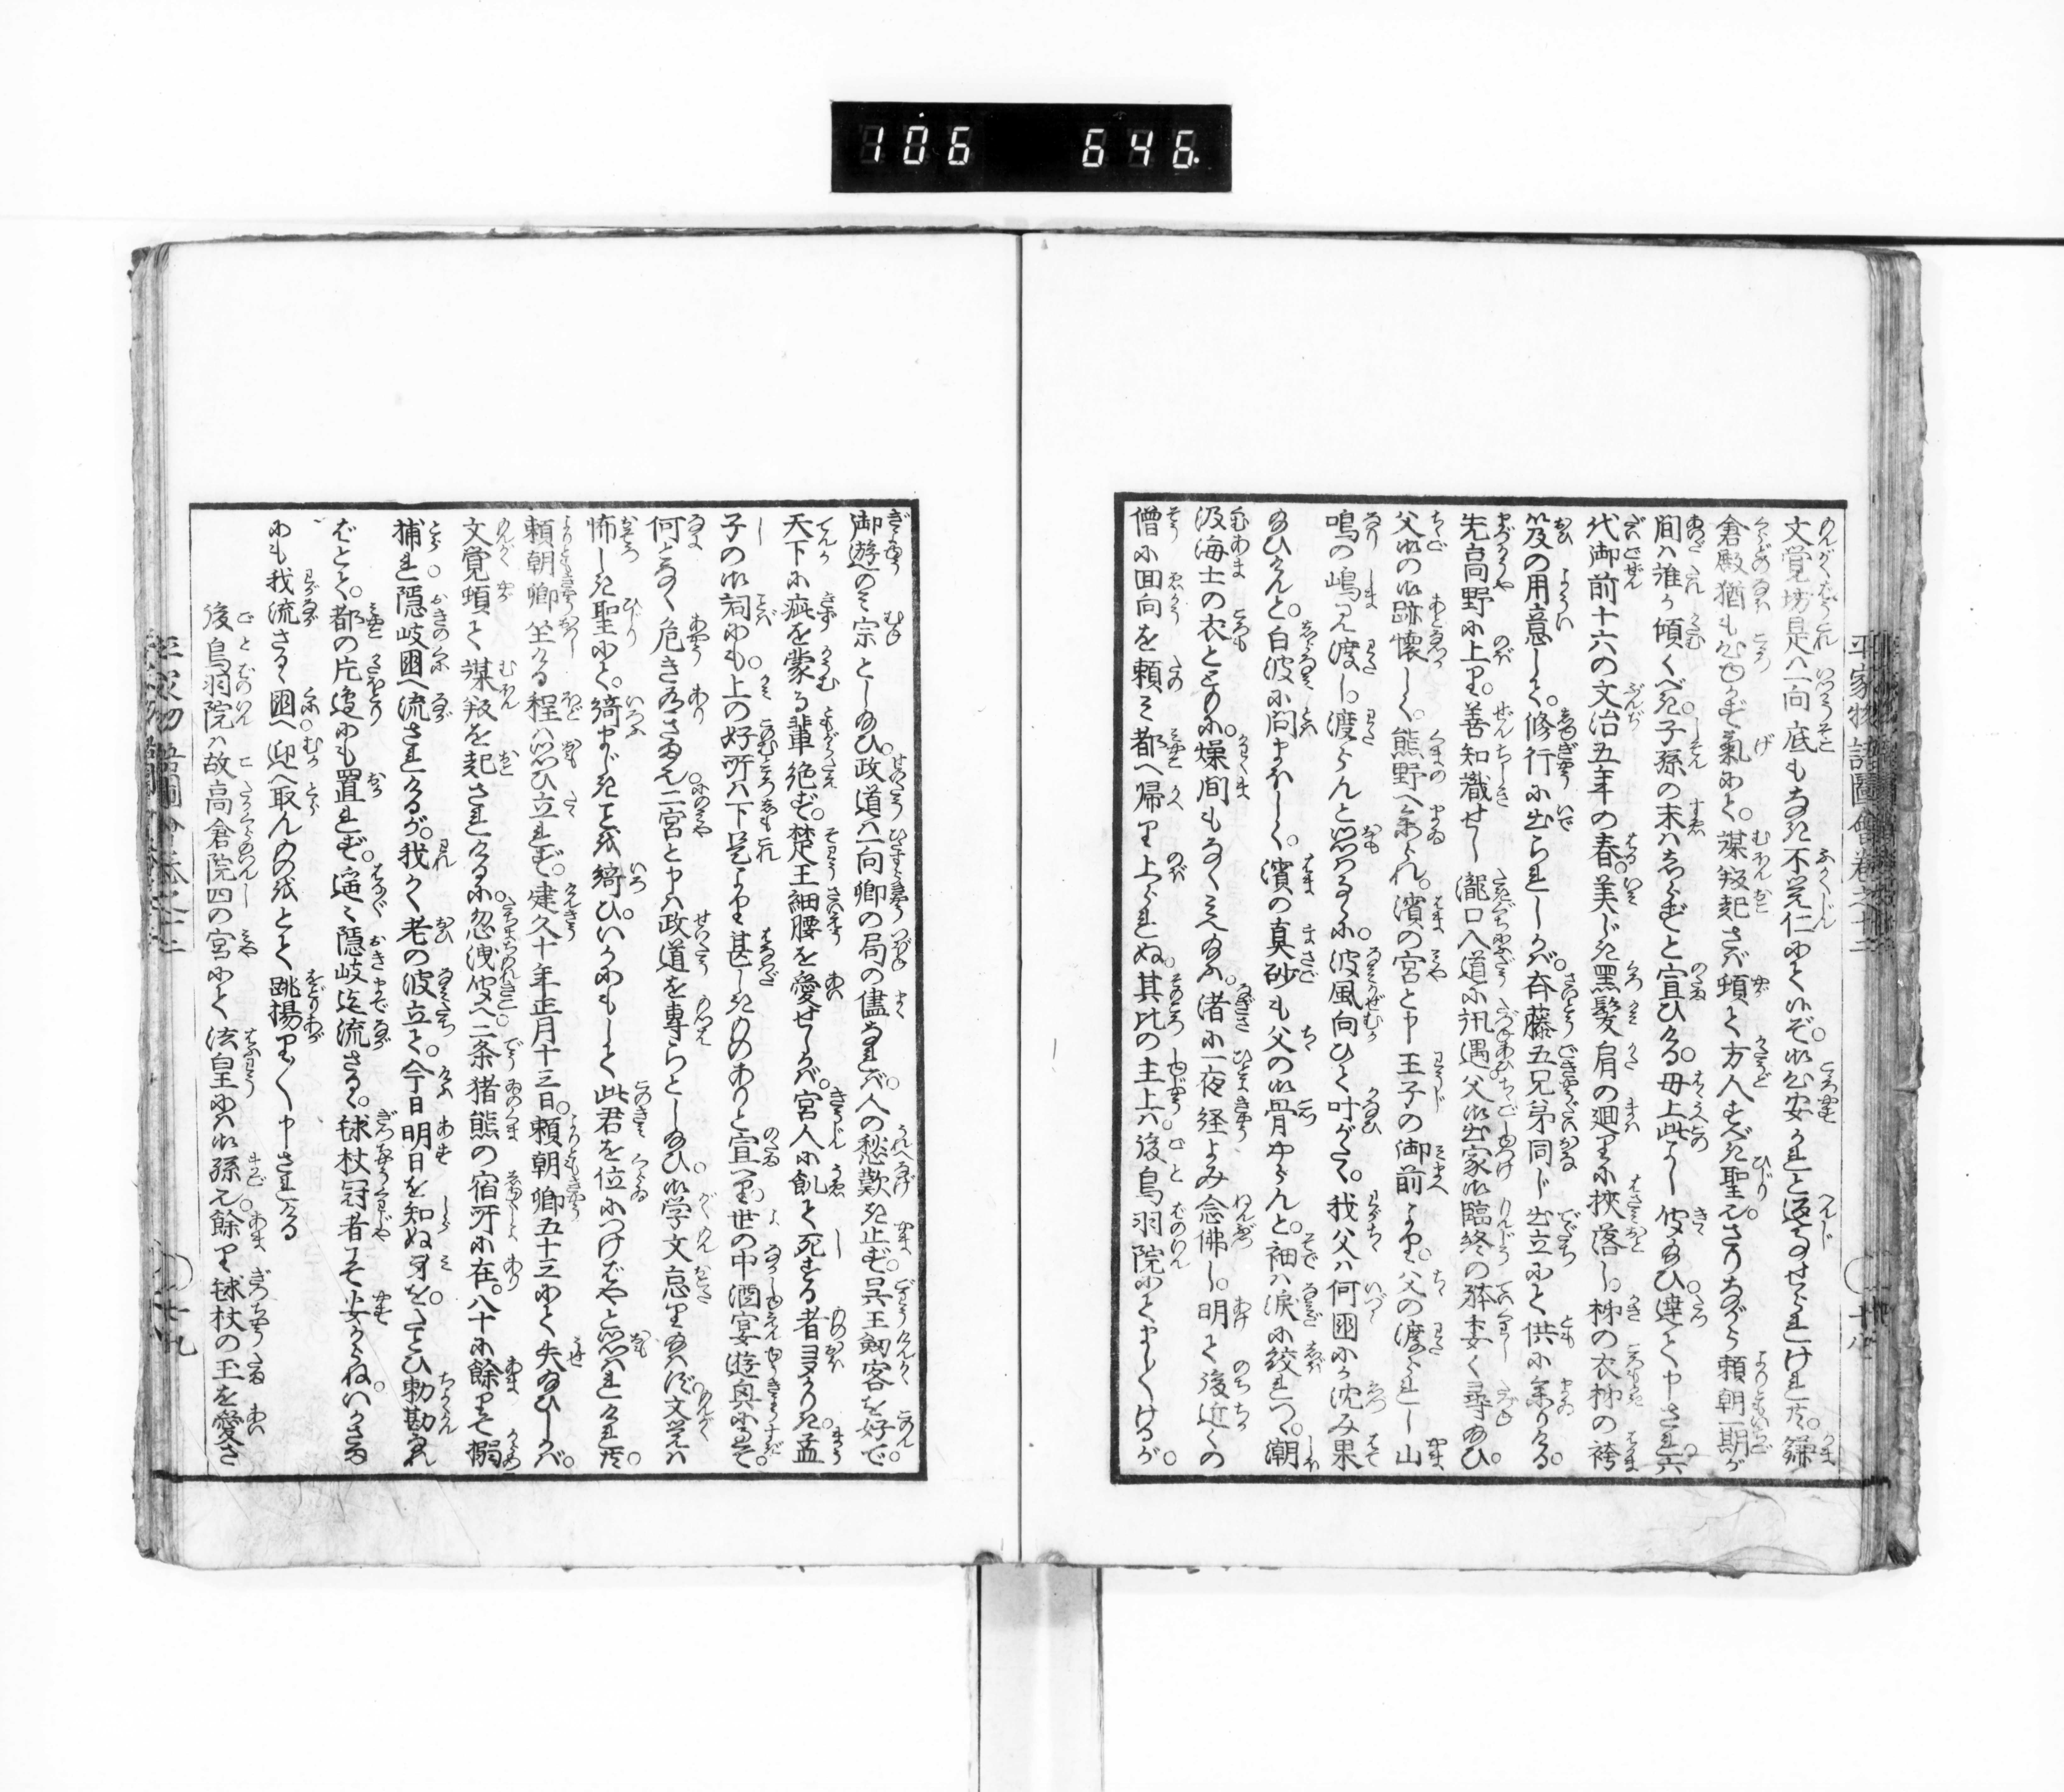 106 646
平家物語圖會巻之十二
十八
文覚坊是ハ一向底もなき不覚仁にて候ぞ。御心安かれと返事せられけれ共。鎌
倉殿猶も心ゆかず氣にて。謀叛起さば頓て方人すべき聖也さりながら頼朝一期が
間ハ誰か傾くべき。子孫の末ハしらずと宣ひける。母上此よし伩給ひ
代御前十六の文治五年の春。美しき黒髪肩の廻りに挾落し。柿の衣柿の袴
笈の用意して。修行に出られしかバ。斉藤五兄弟同じ出立にて供に参りける。
先高野に上り。善知識せし瀧口入道に尋遇。父御出家御臨終の躰委く尋給ひ。
父御の御跡懐しく。熊野へ参られ。濱の宮と申王子の御前より。父の渡られし山
鳴の嶋見渡し。渡らんと思はるゝに。波風向ひて叶がたく。我父ハ何國にか沈み果
給ひけんと。白波に問まほしく。濱の真砂も父の御骨やらんと。袖ハ涙に絞れつゝ。潮
汲海士の衣となりに。燥間もなく見え給ふ。渚に一夜経よみ念佛し。明て後近くの
僧に回向を頼て都へ帰り上られぬ。其比の主上ハ後鳥羽院にてましくけるが。
御遊のミ宗としゐひ。政道ハ一向卿の局の儘なれバ。人の愁歎き止ず。呉王剱客を好で。
天下に疵を蒙る輩絶ず。楚王細腰を愛せしかバ。宮人に飢て死する者多かりき。孟
子の御詞にも。上の好所ハ下是より甚しきものありと宣へり。世の中酒宴遊興に長て。
何となく危き有さま也。二宮と申ハ政道を専らとしゐひ。御学文怠りゐハず。文覚ハ
怖しき聖にて。綺まじき事を綺ひ。いかにもして此君を位につけばやと思はれけれ共。
頼朝卿坐ける程ハ思ひ立れず。建久十年正月十三日。頼朝卿五十三にて失ゐひしかバ。
文覚頓て謀叛を起されけるに。忽洩伩へ二条猪熊の宿所に在。八十に餘りて搦
捕れ隠岐國へ流されけるが。我かく老の波立て。今日明日を知ぬ身を。たとひ勅勘なれ
ばとて。都の片邊にも置れず。遥々隠岐迄流さるゝ。毬杖冠者こそ安からね。いかさま
にも我流さるゝ國へ迎へ取んものをとて跳揚りく申されける
後鳥羽院ハ故高倉院四の宮にて法皇にハ御孫也。餘り毬杖の玉を愛さ
平家物語圖會巻之十二
十九